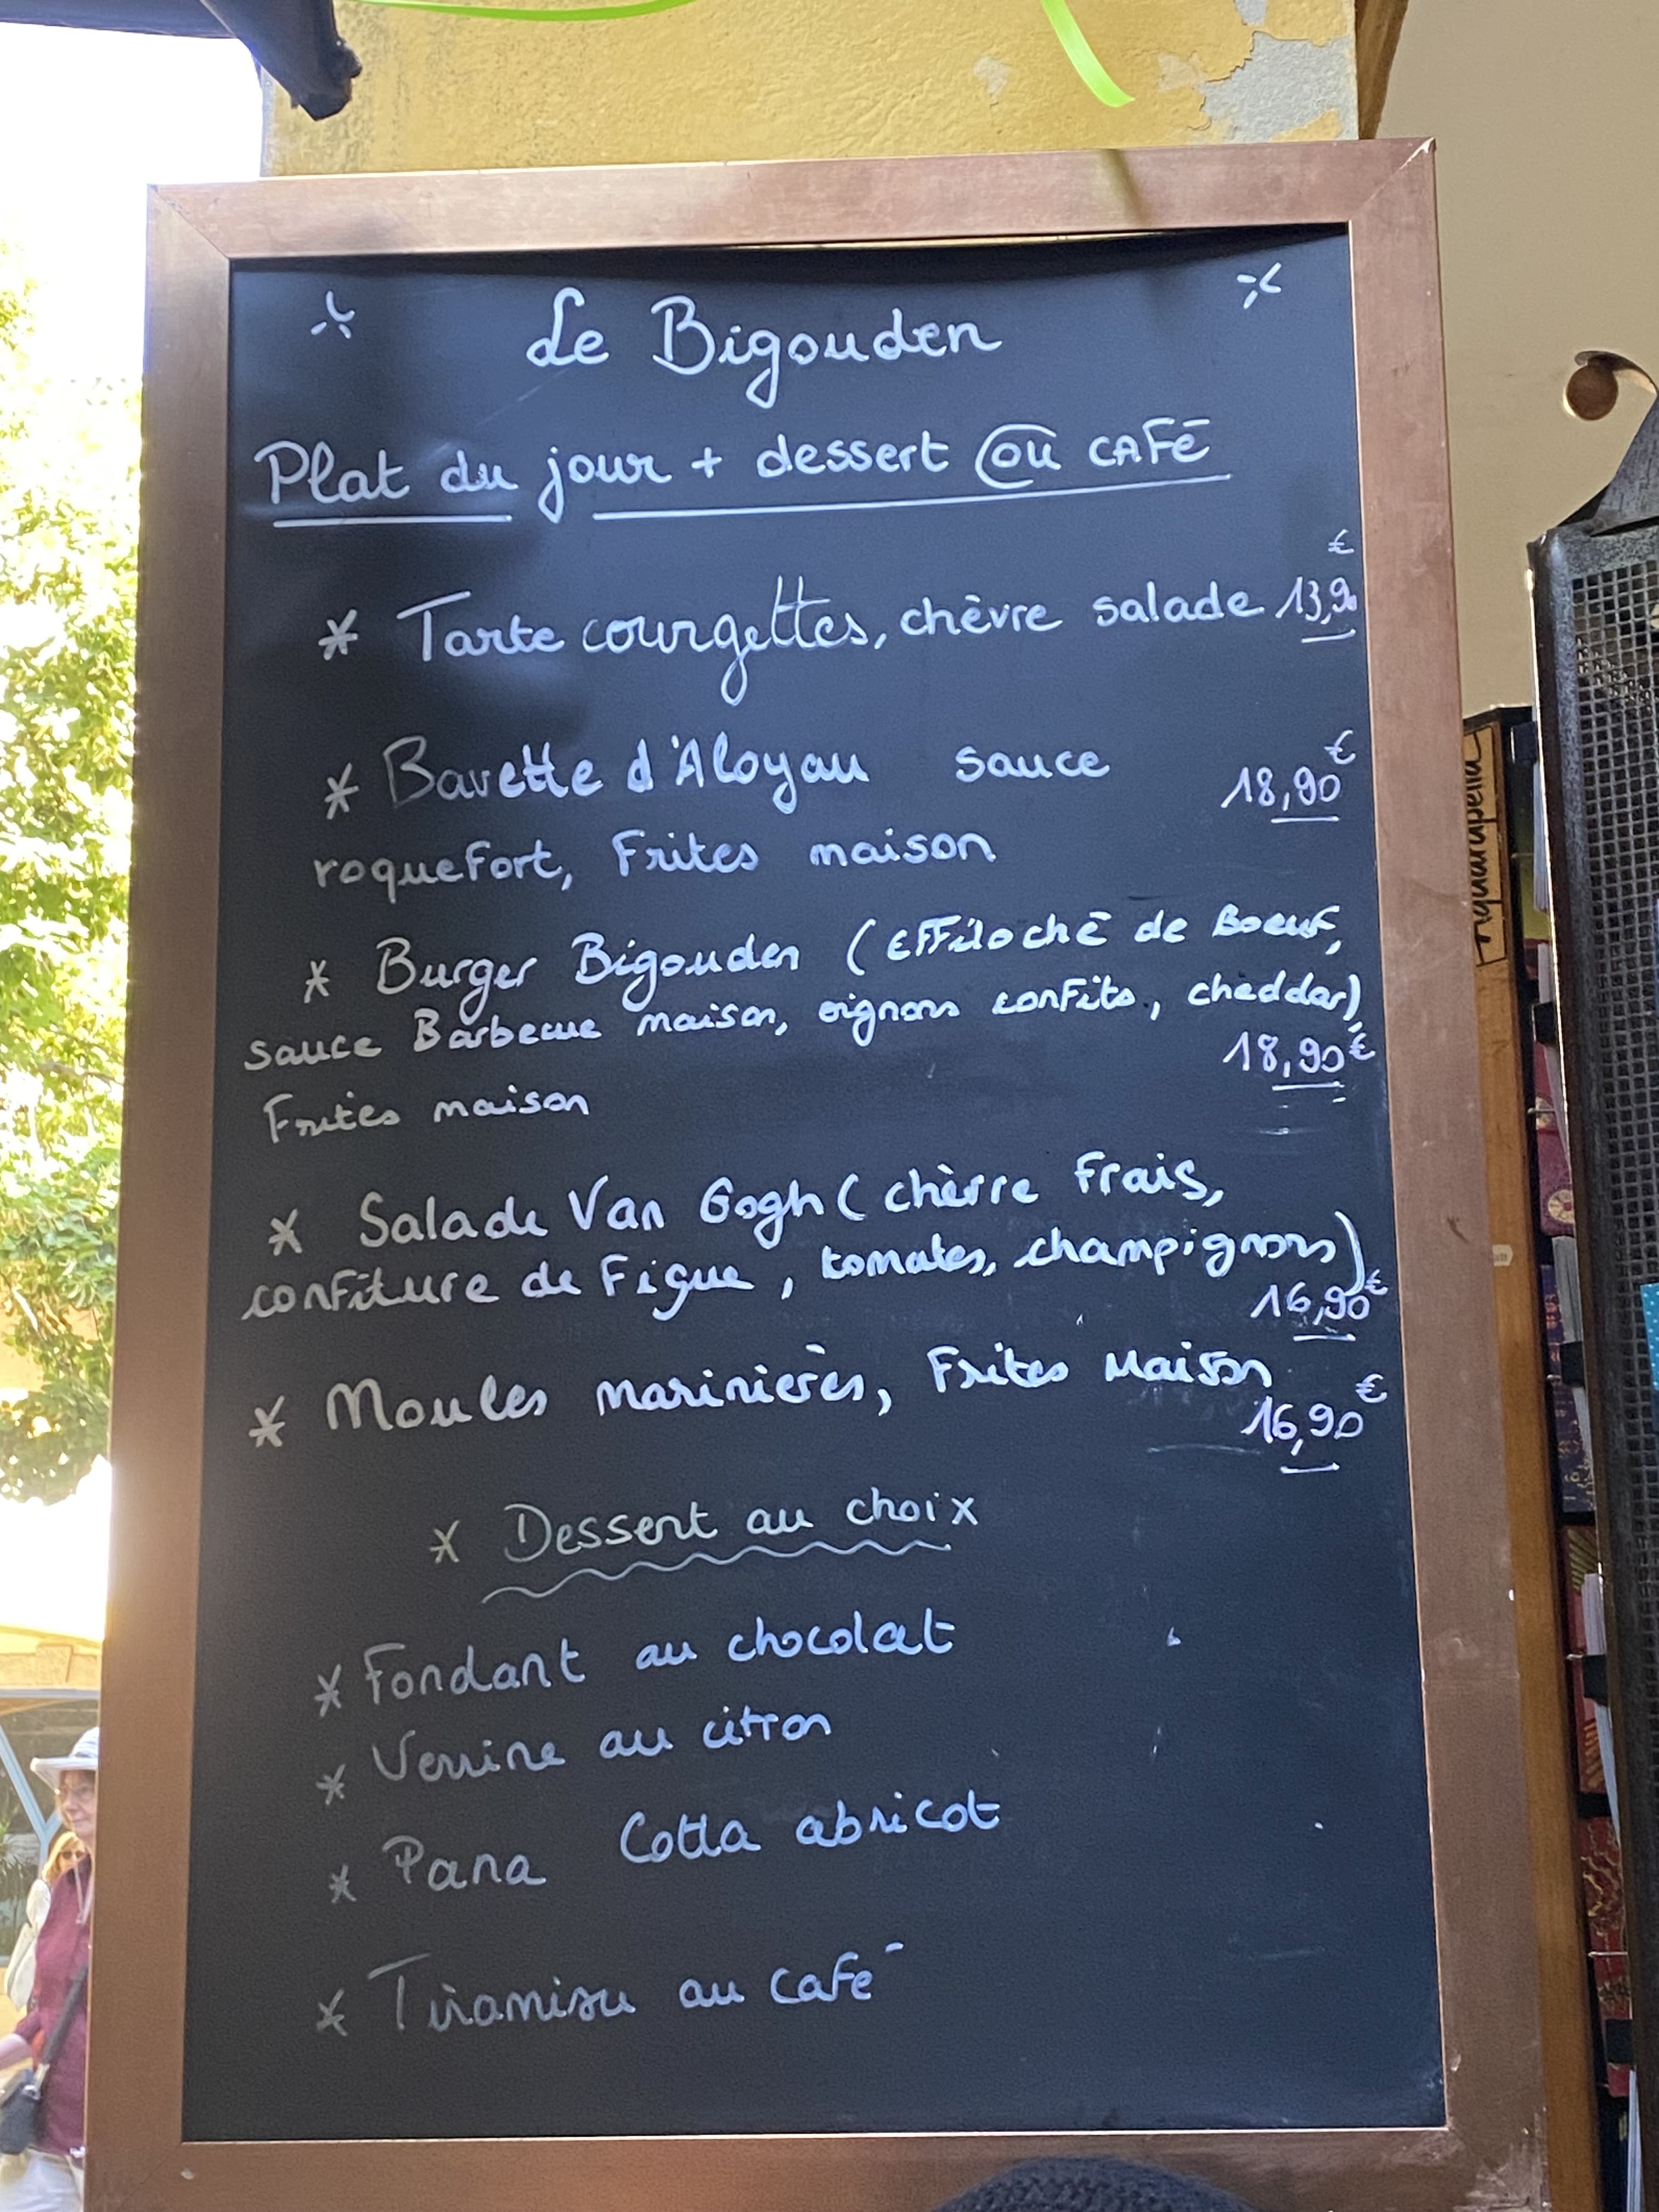 Le Bigouden
Plat du jour + dessert ou CAFÉ
* Tarte courgettes, chèvre salade 13,90 €
* Bavette d'Aloyau sauce 18,90 €
roquefort, Frites maison
* Burger Bigouden (Effiloché de Boeuf,
sauce Barbecue maison, oignons confits, cheddar)
18,90 €
Frites maison
* Salade Van Gogh (chèvre Frais,
confiture de Figue, tomates, champignons)
16,90 €
* Moules marinières, Frites Maison
16,90 €
* Dessert au choix
* Fondant au chocolat
* Verrine au citron
* Pana Cotta abricot
* Tiramisu au café
Aquarupella